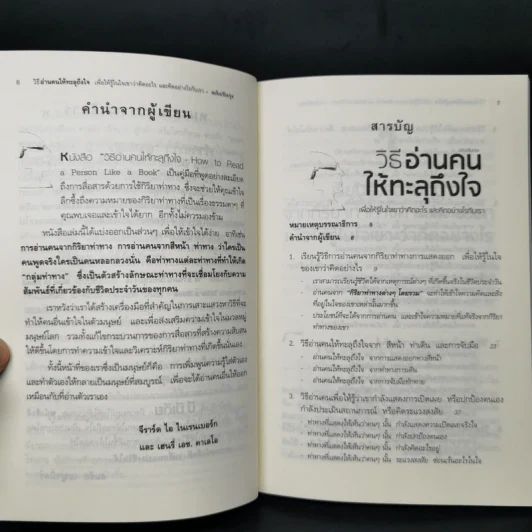 6 วิธีอ่านคนให้ทะลุถึงใจ เพื่อให้รู้ในใจเขาว่าคิดอะไร และคิดอย่างไรกับเรา
คำนำจากผู้เขียน
หนังสือ "วิธีอ่านคนให้ทะลุถึงใจ - How to Read
a Person Like a Book" เป็นคู่มือที่พูดอย่างละเอียด
ถึงการสื่อสารด้วยการใช้กิริยาท่าทาง ซึ่งจะช่วยให้คุณเข้าใจ
ลึกซึ้งถึงความหมายของกิริยาท่าทางที่เป็นเรื่องธรรมดาๆ ที่
คุณพบเจอและเข้าใจได้ยาก อีกทั้งไม่ควรมองข้าม
หนังสือเล่มนี้ได้แบ่งออกเป็นส่วนๆ เพื่อให้เข้าใจได้ง่าย อาทิเช่น
การอ่านคนจากกิริยาท่าทาง การอ่านคนจากสีหน้า ท่าทาง ว่าใครเป็น
คนพูดจริงใครเป็นคนหลอกลวงนั้น คือท่าทางแต่ละท่าทางที่ทำให้เกิด
"กลุ่มท่าทาง" ซึ่งเป็นตัวสร้างลักษณะท่าทางที่จะเชื่อมโยงกับความ
สัมพันธ์ที่เกี่ยวข้องกับชีวิตประจำวันของทุกคน
เราหวังว่าเราได้สร้างเครื่องมือที่สำคัญในการเสาะแสวงหาวิธีที่จะ
ทำให้คนอื่นเข้าใจในตัวมนุษย์ และเพื่อส่งเสริมความเข้าใจในหมู่มวล
มนุษย์โลก รวมทั้งแก้ไขกระบวนการของการสื่อสารที่สร้างความสับสน
ให้ดีขึ้นโดยการทำความเข้าใจและวิเคราะห์กิริยาท่าทางที่เกิดขึ้นนั่นเอง
ทั้งนี้หน้าที่ของเราซึ่งเป็นมนุษย์ก็คือ การเพิ่มพูนความรู้ใส่ตัวเอง
และทำตัวเองให้กลายเป็นมนุษย์ที่สมบูรณ์ เพื่อจะได้อ่านคนอื่นให้ออก
เหมือนกับที่อ่านตัวเราเอง
จีราร์ด ไอ ไนเรนเบอร์ก
และ เฮนรี่ เอช. คาเลโร
7
สารบัญ
วิธีอ่านคน
ให้ทะลุถึงใจ
เพื่อให้รู้ในใจเขาว่าคิดอะไร และคิดอย่างไรกับเรา
หมายเหตุบรรณาธิการ
คำนำจากผู้เขียน 6
1. เรียนรู้วิธีการอ่านคนจากกิริยาท่าทางการแสดงออก เพื่อให้รู้ในใจ
ของเขาว่าคิดอย่างไร 9
- เราสามารถเรียนรู้วิธีดูได้จากเหตุการณ์ต่างๆ ที่เกิดขึ้นจริงในชีวิตประจำวัน
- อ่านคนจาก "กิริยาท่าทางต่างๆ โดยรวม" จะทำให้เข้าใจความคิดและสิ่ง
ที่อยู่ในใจของเขาเหล่านั้นมากขึ้น
- ประโยชน์ที่จะได้จากการอ่านคน และเข้าใจความหมายที่แท้จริงจากกิริยา
ท่าทางของเขา
2. วิธีอ่านคนให้ทะลุถึงใจจาก สีหน้า ท่าเดิน และการจับมือ
- อ่านคนให้ทะลุถึงใจ จากการแสดงออกทางสีหน้า
- อ่านคนให้ทะลุถึงใจ จากท่าทางการเดิน
- อ่านคนให้ทะลุถึงใจ จากการจับมือทักทาย
3. วิธีอ่านคนเพื่อให้รู้ว่ากำลังแสดงการเปิดเผย หรือปกป้องตนเอง
กำลังประเมินสถานการณ์ หรือคิดระแวงสงสัย
- ท่าทางที่แสดงให้เห็นว่าคนๆ นั้น กำลังแสดงความเปิดเผยจริงใจ
- ท่าทางที่แสดงให้เห็นว่าคนๆ นั้น กำลังปกป้องตนเอง
- ท่าทางที่แสดงให้เห็นว่าคนๆ นั้น กำลังคิดอะไรอยู่
- ท่าทางที่แสดงให้เห็นว่าคนๆ นั้น ระแวงสงสัย